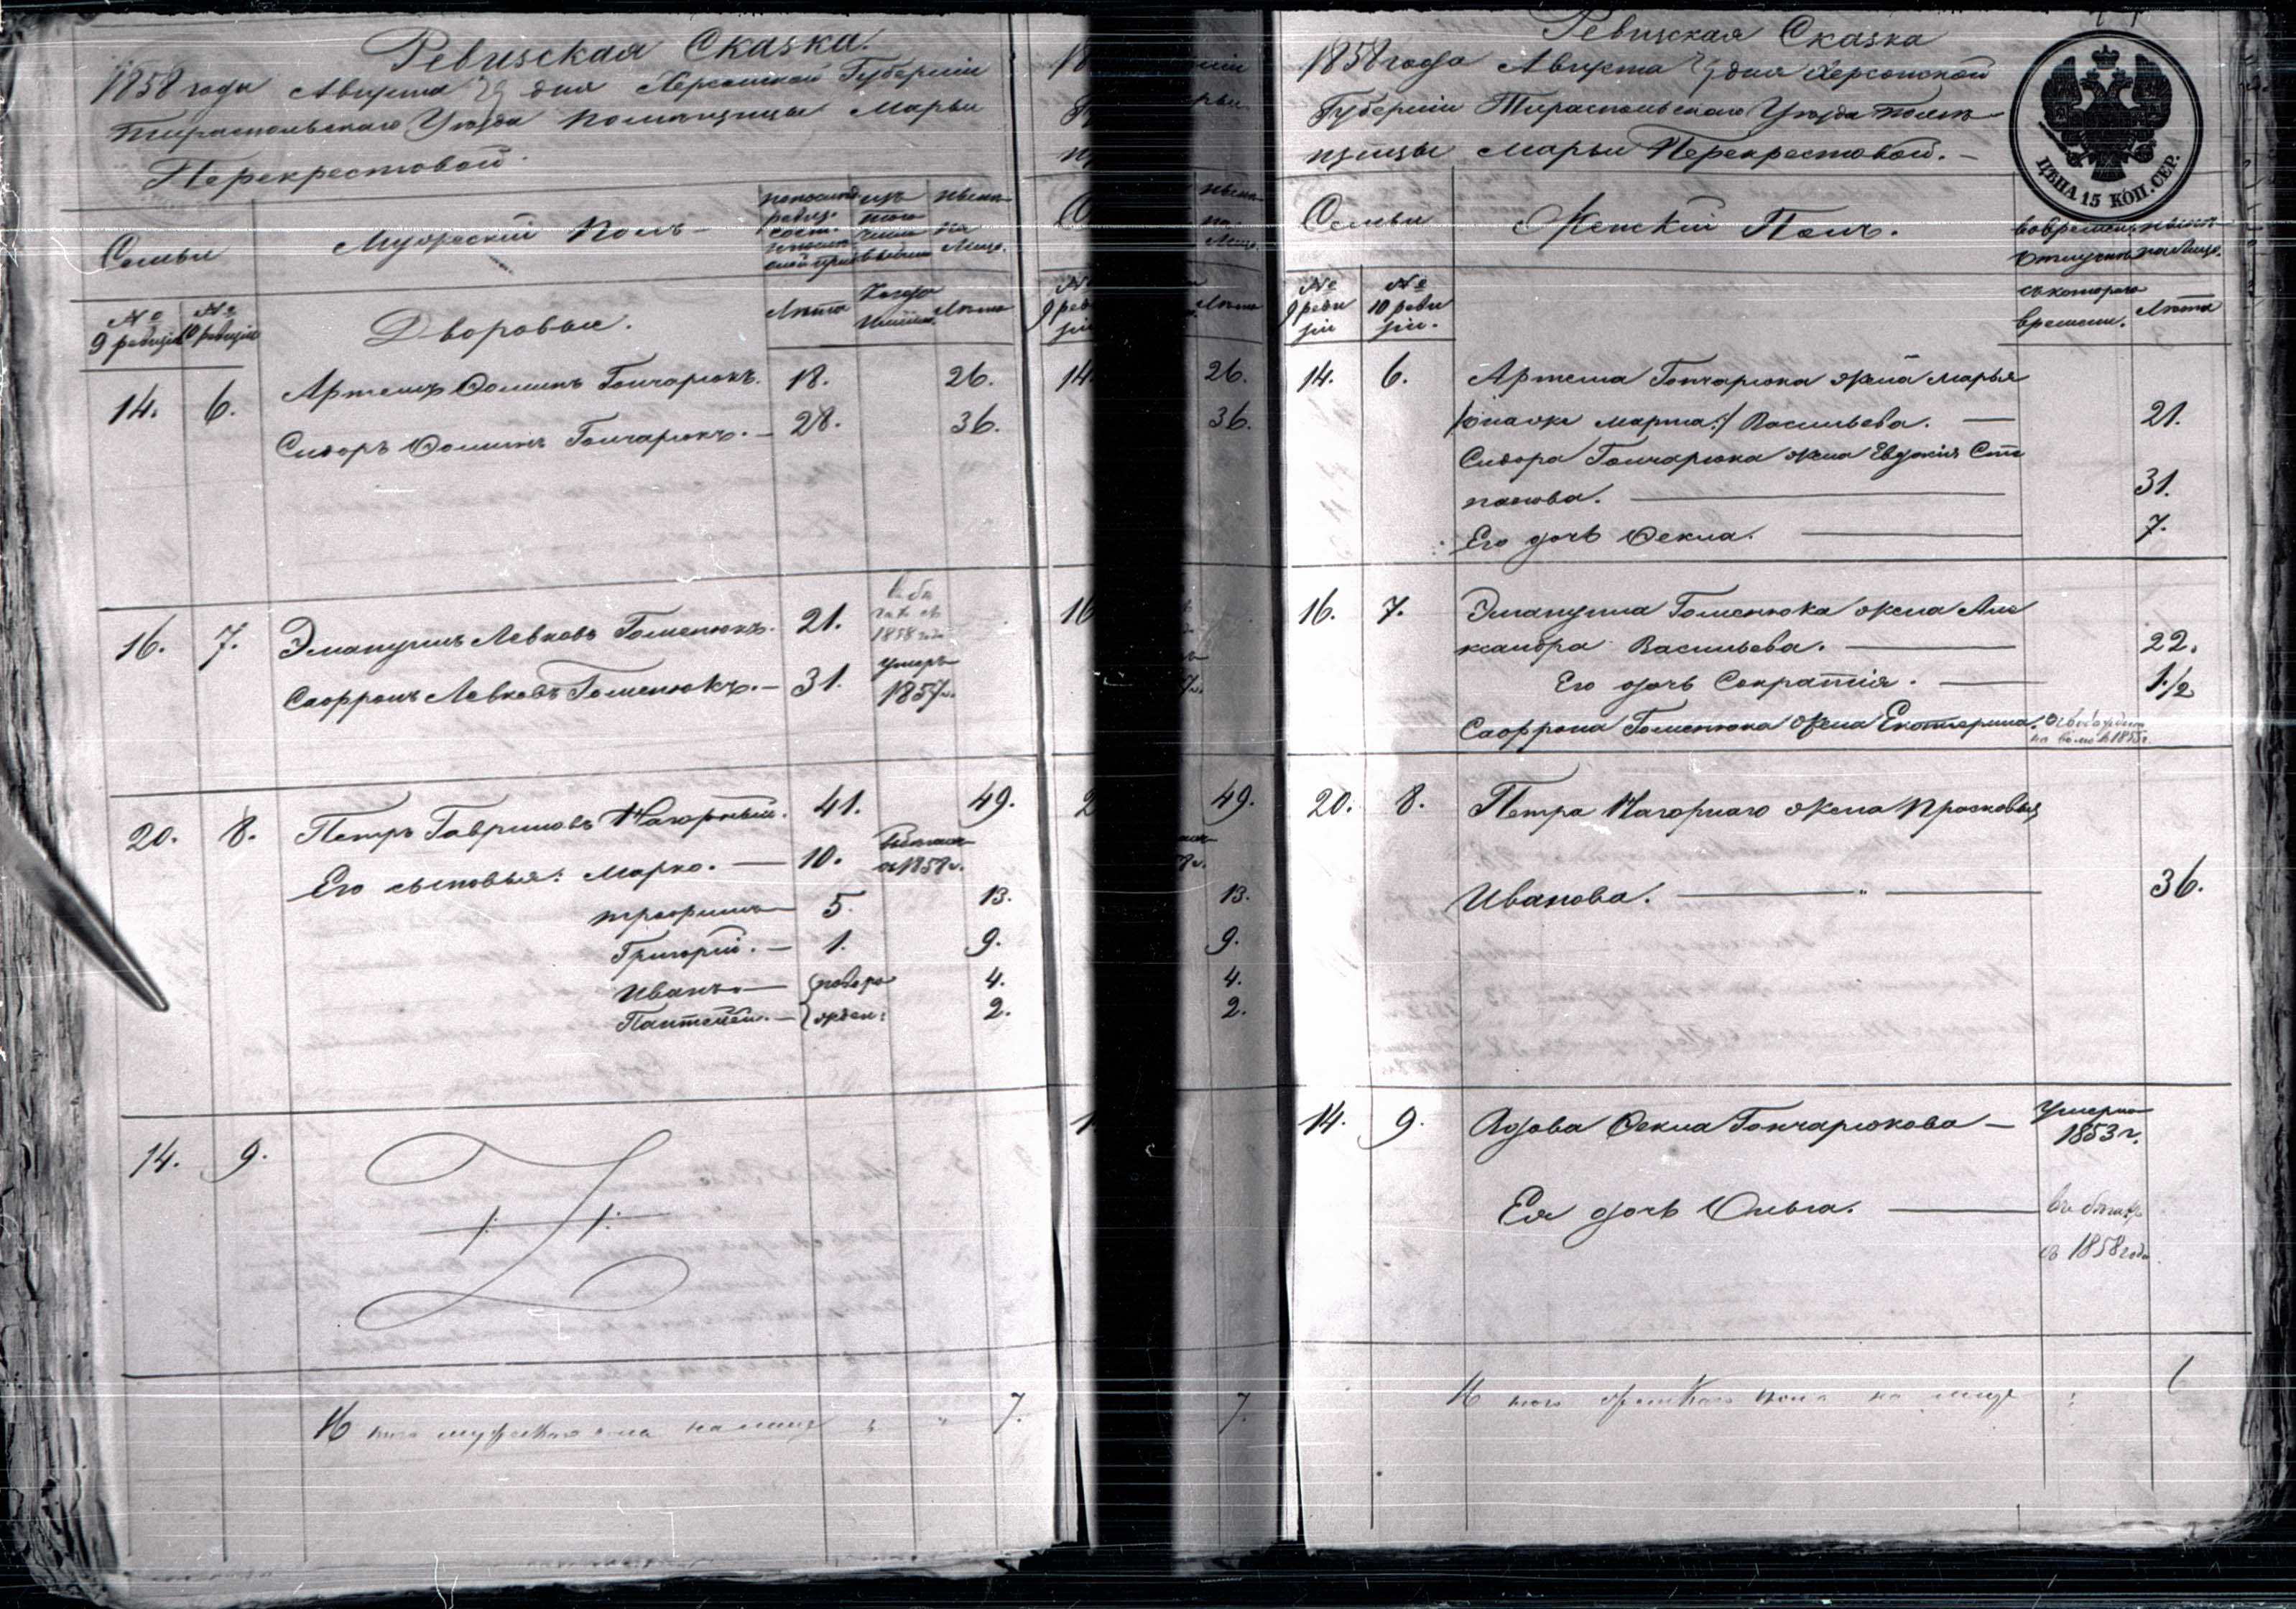 Ревизская Сказка.
1858 года Августа 29 дня Херсонской Губерніи
Тираспольскаго Уезда помещицы Марьи
Перекрестовой.
Семьи
Мужескій Полъ
по последней ревиз.
изъ того числа выбыли
ныне на Лице.
№ 9 ревизіи
№ 10 ревизіи
Дворовые.
Лета
Когда именно
Лета
14. 6. Артемъ Фоминъ Гончарюкъ. 18. 26.
Сидоръ Фоминъ Гончарюкъ. — 28. 36.
16. 7. Эмануилъ Левковъ Гоменюкъ. 21. въ бегахъ съ 1858 года
Сафронъ Левковъ Гоменюкъ. — 31. умеръ 1857 г.
20. 8. Петръ Гавриловъ Нагорный. 41. 49.
Его сыновья: Марко. — 10. въ 1858 г.
Трофимъ — 5. 13.
Григорій. — 1. 9.
Иванъ. — новоро 4.
Пантелей. — жден: 2.
14. 9.
Итого мужескаго пола на лице 7.
Ревизская Сказка
1858 года Августа 29 дня Херсонской
Губерніи Тираспольскаго Уезда поме
щицы Марьи Перекрестовой. —
ЦѢНА 15 КОП. СЕР.
Семьи
Женскій Полъ.
во временной отлучке
ныне на Лице.
№ 9 реви зіи
№ 10 реви зіи.
съ котораго времени.
Лета
14. 6. Артема Гончарюка жена Марья
/: она же Марта :/ Васильева. — 21.
Сидора Гончарюка жена Евдокія Сте
панова. — 31.
Его дочь Фекла. — 7.
16. 7. Эмануила Гоменюка жена Але
ксандра Васильева. — 22.
Его дочь Сократія. — 1/2
Сафрона Гоменюка жена Екатерина. на волю в 1855 г.
20. 8. Петра Нагорнаго жена Прасковья
Иванова. — " — 36.
14. 9. Вдова Фекла Гончарюкова — Умерла
1853 г.
Ея дочь Ольга. — въ бегахъ
съ 1858 года
Итого женскаго пола на лице